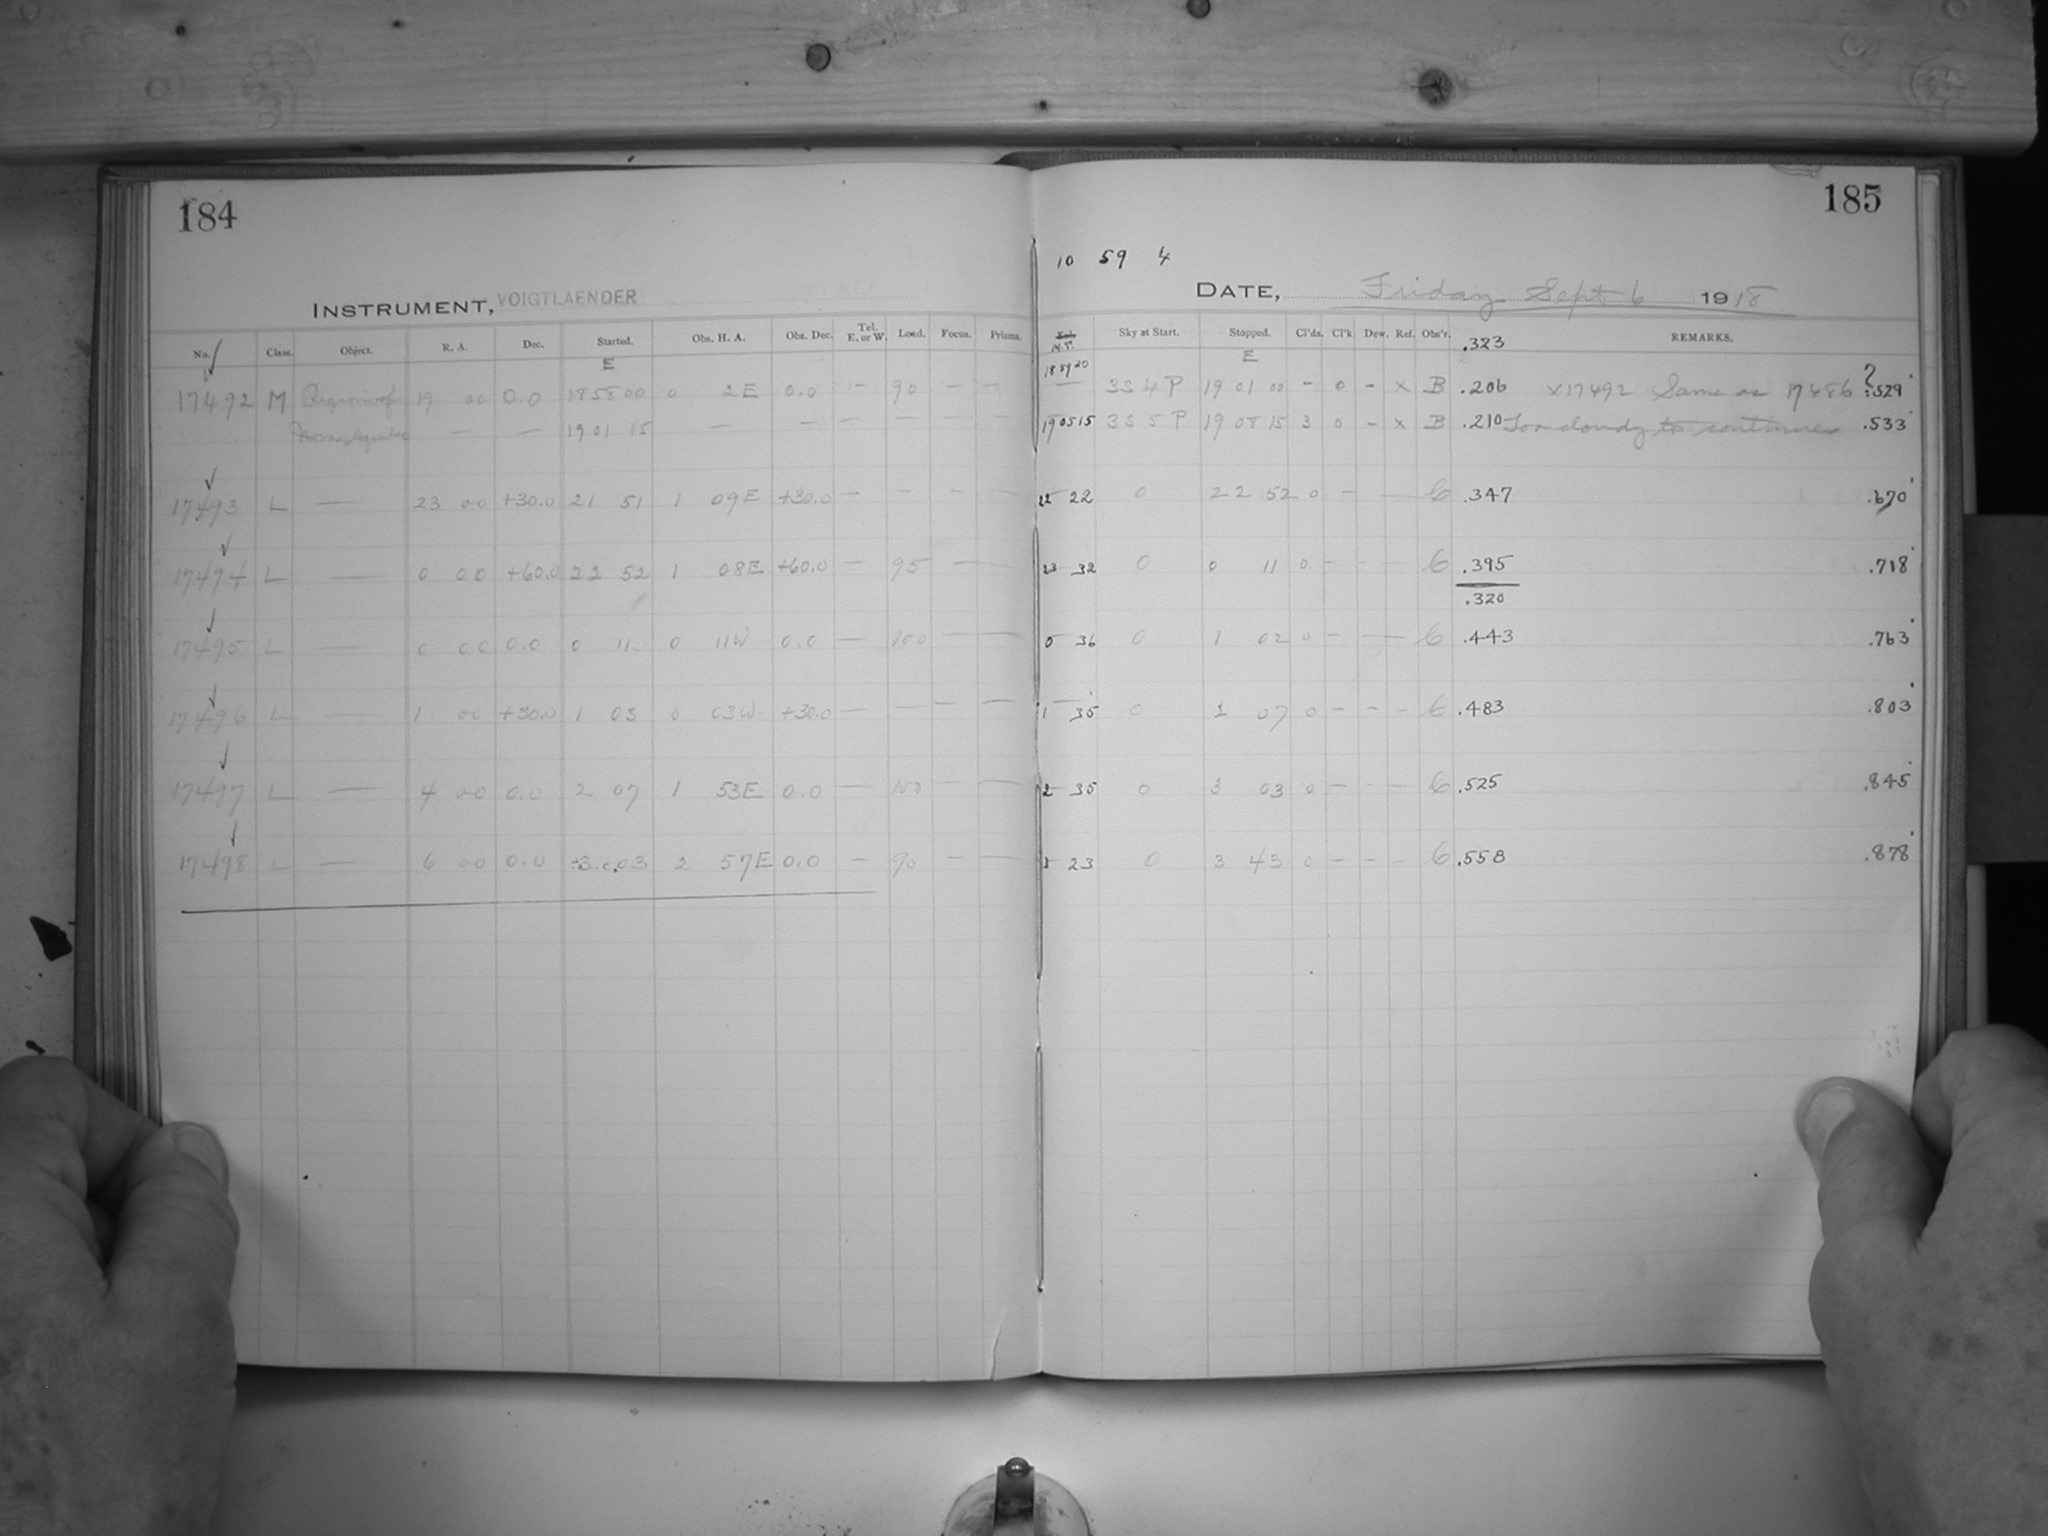 184
INSTRUMENT, VOIGTLAENDER
No. Class. Object. R. A. Dec. Started. Obs. H. A. Obs. Dec. Tel. E. or W. Load. Focus. Prisms.
E
17492 M Region of 19 00 0.0 18 58 00 0 2 E 0.0 — 90 — —
Nova Aquilae — — 19 01 15 — — — — — —
17493 L — 23 00 +30.0 21 51 1 09 E +30.0 — — — —
17494 L 0 00 +60.0 22 52 1 08 E +60.0 — 95 — —
17495 L — 0 00 0.0 0 11 0 11 W 0.0 — 100 — —
17496 L — 1 00 +30.0 1 03 0 03 W +30.0 — — — —
17497 L — 4 00 0.0 2 07 1 53 E 0.0 — 100 — —
17498 L — 6 00 0.0 3 03 2 57 E 0.0 — 90 — —
185
10 59 4
DATE, Friday Sept 6 1918
M.T. Sky at Start. Stopped. Cl'ds. Cl'k. Dew. Ref. Obs'r. .323 REMARKS.
E
18 59 30 3S 4 P 19 01 00 - 0 - x B .206 x17492 Same as 17486 ? .529
19 05 15 3S 5 P 19 08 15 3 0 - x B .210 Too cloudy to continue .533
22 22 0 22 52 0 - — 6 .347 .670
23 32 0 0 11 0 - - - 6 .395 .718
.320
0 36 0 1 02 0 - — 6 .443 .763
1 35 0 2 07 0 - - - 6 .483 .803
2 35 0 3 03 0 - - - 6 .525 .845
3 23 0 3 43 0 - - - 6 .558 .878